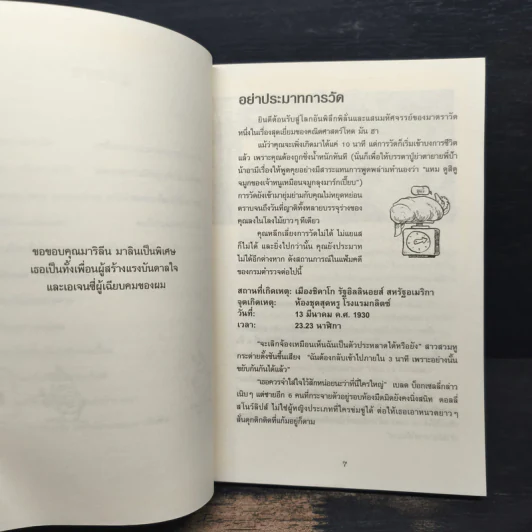 ขอขอบคุณมาริลีน มาลินเป็นพิเศษ
เธอเป็นทั้งเพื่อนผู้สร้างแรงบันดาลใจ
และเอเจนซี่ผู้เฉียบคมของผม
อย่าประมาทการวัด
ยินดีต้อนรับสู่โลกอันพิลึกพิลั่นและแสนมหัศจรรย์ของมาตราวัด
หนึ่งในเรื่องสุดเยี่ยมของคณิตศาสตร์โหด มัน ฮา
แม้ว่าคุณจะเพิ่งเกิดมาได้แค่ 10 นาที แต่การวัดก็เริ่มเข้าบงการชีวิต
แล้ว เพราะคุณต้องถูกชั่งน้ำหนักทันที (นั่นก็เพื่อให้บรรดาปู่ย่าตายายพี่ป้า
น้าอามีเรื่องให้พูดคุยอย่างมีสาระแทนการพูดพล่ามทำนองว่า "แหม ดูสิดู
จมูกของเจ้าหนูเหมือนจมูกลุงมาร์กเปี๊ยบ")
การวัดยังเข้ามายุ่มย่ามกับคุณไม่หยุดหย่อน
ตราบจนถึงวันที่ญาติทั้งหลายบรรจุร่างของ
คุณลงในโลงไม้ยาวๆ ทีเดียว
คุณหลีกเลี่ยงการวัดไม่ได้ ไม่แยแส
ก็ไม่ได้ และยิ่งไปกว่านั้น คุณยังประมาท
ไม่ได้อีกต่างหาก ดังสถานการณ์ในแฟ้มคดี
ของกรมตำรวจต่อไปนี้
สถานที่เกิดเหตุ: เมืองชิคาโก รัฐอิลลินอยส์ สหรัฐอเมริกา
จุดเกิดเหตุ: ห้องชุดสุดหรู โรงแรมกลิตซ์
วันที่: 13 มีนาคม ค.ศ. 1930
เวลา: 23.23 นาฬิกา
"จะเลิกจ้องเหมือนเห็นฉันเป็นตัวประหลาดได้หรือยัง" สาวสวมหู
กระต่ายตั้งชันขึ้นเสียง "ฉันต้องกลับเข้าไปภายใน 3 นาที เพราะอย่างนั้น
ขยับกันกันได้แล้ว"
"เธอควรจำใส่ใจไว้สักหน่อยนะว่าที่นี่ใครใหญ่" เบลด บ็อกเซลลี่กล่าว
เนิบๆ แต่ชายอีก 6 คนที่กระจายตัวอยู่รอบห้องมืดมิดยังคงนิ่งสนิท ดอลลี่
สโนว์ลิปส์ ไม่ใช่ผู้หญิงประเภทที่ใครข่มขู่ได้ ต่อให้เธอเอาหนวดยาวๆ
สั้นดุกดิกติดที่แก้มอยู่ก็ตาม
7